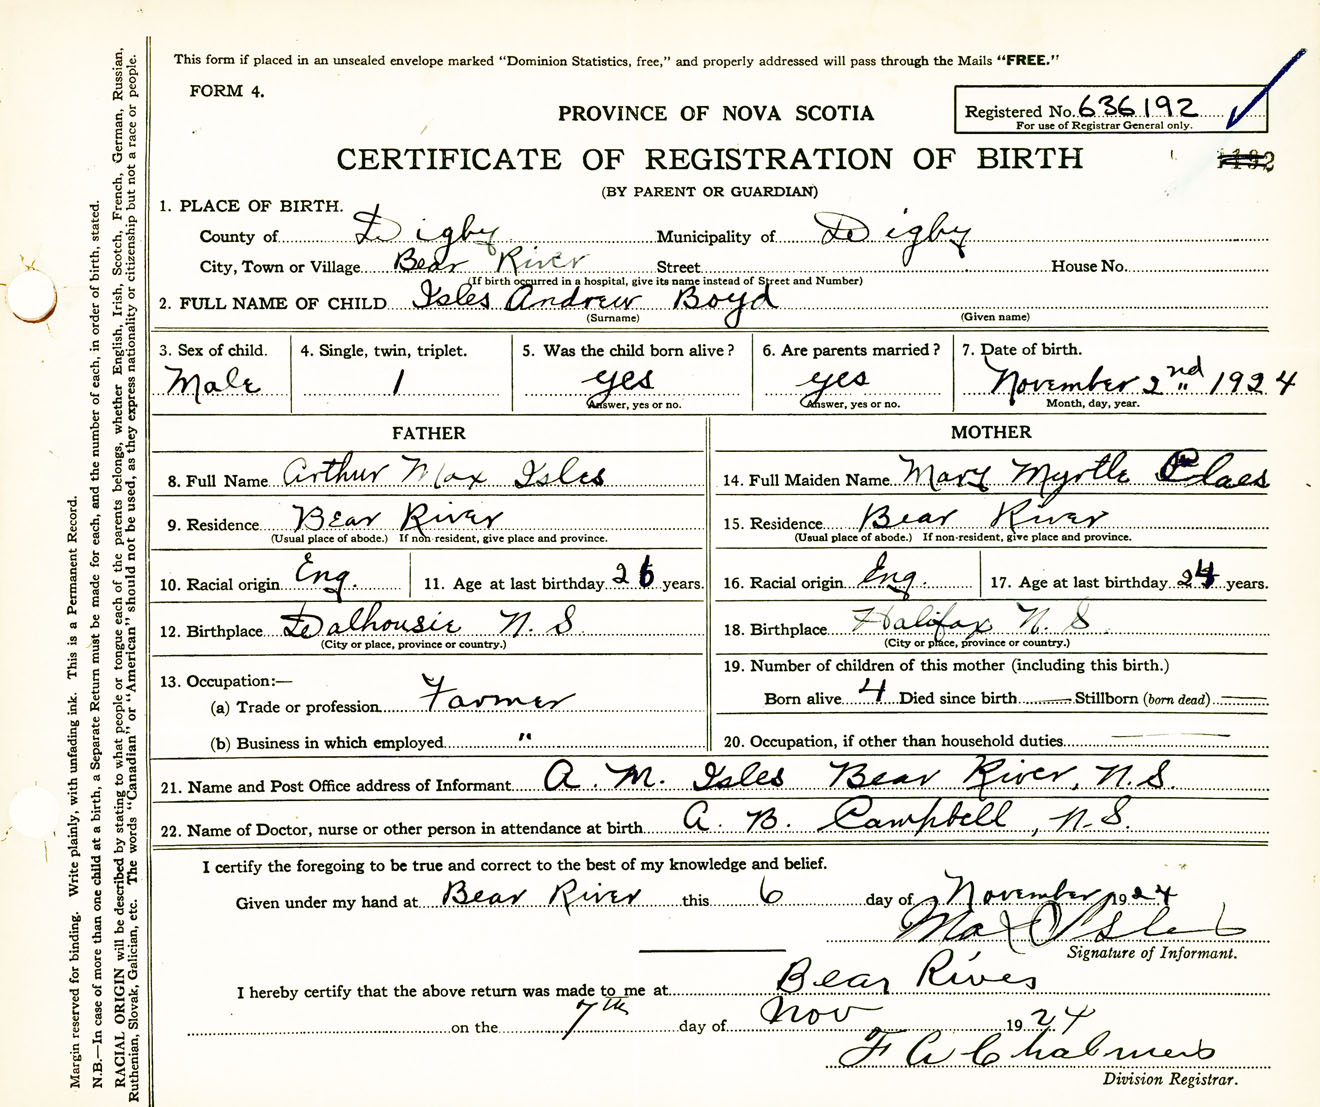 This form if placed in an unsealed envelope marked "Dominion Statistics, free," and properly addressed will pass through the Mails "FREE."
FORM 4.
PROVINCE OF NOVA SCOTIA
Registered No. 636192
For use of Registrar General only.
CERTIFICATE OF REGISTRATION OF BIRTH
(BY PARENT OR GUARDIAN)
1. PLACE OF BIRTH.
County of Digby Municipality of Digby
City, Town or Village Bear River Street House No.
(If birth occurred in a hospital, give its name instead of Street and Number)
2. FULL NAME OF CHILD Isles Andrew Boyd
(Surname) (Given name)
3. Sex of child. 4. Single, twin, triplet. 5. Was the child born alive? 6. Are parents married? 7. Date of birth.
Male 1 yes yes November 2nd 1924
Answer, yes or no. Answer, yes or no. Month, day, year.
FATHER MOTHER
8. Full Name Arthur Max Isles 14. Full Maiden Name Mary Myrtle
9. Residence Bear River 15. Residence Bear River
(Usual place of abode.) If non-resident, give place and province. (Usual place of abode.) If non-resident, give place and province.
10. Racial origin Eng. 11. Age at last birthday 26 years. 16. Racial origin Eng. 17. Age at last birthday 24 years.
12. Birthplace Dalhousie N. S. 18. Birthplace Halifax N. S.
(City or place, province or country.) (City or place, province or country.)
13. Occupation:— 19. Number of children of this mother (including this birth.)
(a) Trade or profession Farmer Born alive 4 Died since birth — Stillborn (born dead) —
(b) Business in which employed " 20. Occupation, if other than household duties —
21. Name and Post Office address of Informant A. M. Isles Bear River, N.S.
22. Name of Doctor, nurse or other person in attendance at birth A. B. Campbell, N.S.
I certify the foregoing to be true and correct to the best of my knowledge and belief.
Given under my hand at Bear River this 6 day of November 1924
Max Isles
Signature of Informant.
I hereby certify that the above return was made to me at Bear River
on the 7th day of Nov 1924
F A Chalmers
Division Registrar.
Margin reserved for binding. Write plainly, with unfading ink. This is a Permanent Record.
N.B.—In case of more than one child at a birth, a Separate Return must be made for each, and the number of each, in order of birth, stated.
RACIAL ORIGIN will be described by stating to what people or tongue each of the parents belongs, whether English, Irish, Scotch, French, German, Russian,
Ruthenian, Slovak, Galician, etc. The words "Canadian" or "American" should not be used, as they express nationality or citizenship but not a race or people.